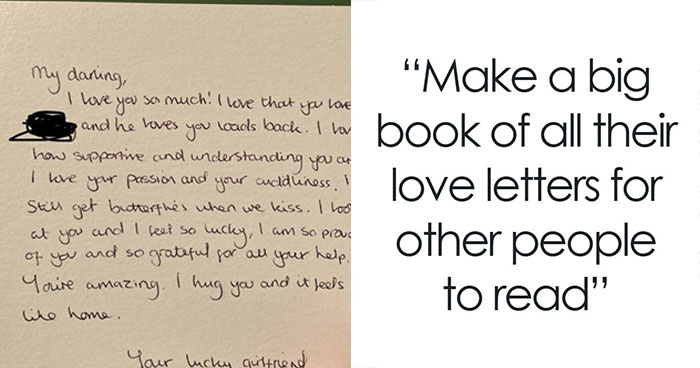 My darling,
I love you so much! I love that you love
and he loves you loads back. I
how supportive and understanding you
I love your passion and your cuddliness. I
still get butterflies when we kiss. I
at you and I feel so lucky. I am so
of you and so grateful for all your help.
You're amazing. I hug you and it feels
like home.
Your lucky girlfriend
“Make a big
book of all their
love letters for
other people
to read”